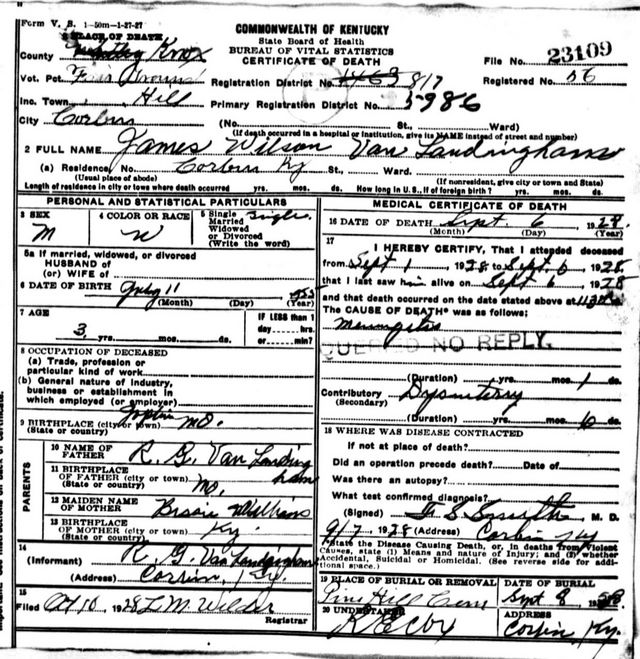 Form V. S. 1-50m-1-27-27
PLACE OF DEATH
COMMONWEALTH OF KENTUCKY
State Board of Health
BUREAU OF VITAL STATISTICS
CERTIFICATE OF DEATH
County Knox
File No. 23109
Vot. Pct.
Registration District No. 1463 817
Registered No. 56
Inc. Town Hill
Primary Registration District No. 5986
City Corbin (No. St., Ward)
(If death occurred in a hospital or institution, give its NAME instead of street and number)
2 FULL NAME James Wilson Van Landingham
(a) Residence, No. Corbin Ky St., Ward.
(Usual place of abode) (If nonresident, give city or town and State)
Length of residence in city or town where death occurred yrs. mos. ds. How long in U. S., if of foreign birth? yrs. mos. ds.
PERSONAL AND STATISTICAL PARTICULARS
3 SEX
M
4 COLOR OR RACE
W
5 Single
Married
Widowed
or Divorced
(Write the word)
Single
5a If married, widowed, or divorced
HUSBAND of
(or) WIFE of
6 DATE OF BIRTH July 11
(Month) (Day) (Year)
7 AGE
3 yrs. mos. ds.
IF LESS than 1
day hrs.
or min?
8 OCCUPATION OF DECEASED
(a) Trade, profession or
particular kind of work
(b) General nature of industry,
business or establishment in
which employed (or employer)
9 BIRTHPLACE (city or town) Joplin Mo.
(State or country)
PARENTS
10 NAME OF
FATHER R. G. Van Landingham
11 BIRTHPLACE
OF FATHER (city or town) Mo.
(State or country)
12 MAIDEN NAME
OF MOTHER Bessie Williams
13 BIRTHPLACE
OF MOTHER (city or town) Ky.
(State or country)
14
(Informant) R. G. Van Landingham
(Address) Corbin, Ky.
15
Filed Oct 10, 1928 L M Wilder
Registrar
MEDICAL CERTIFICATE OF DEATH
16 DATE OF DEATH Sept. 6 1928.
(Month) (Day) (Year)
17
I HEREBY CERTIFY, That I attended deceased
from Sept 1, 1928 to Sept. 6, 1928
that I last saw him alive on Sept 6, 1928
and that death occurred on the date stated above at
The CAUSE OF DEATH* was as follows:
Meningitis
QUERIED NO REPLY.
(Duration) yrs. mos. 1 ds.
Contributory Dysentery
(Secondary)
(Duration) yrs. mos. 6 ds.
18 WHERE WAS DISEASE CONTRACTED
If not at place of death?
Did an operation precede death? Date of
Was there an autopsy?
What test confirmed diagnosis?
(Signed) Smith M. D.
9/7 1928 (Address) Corbin Ky
*State the Disease Causing Death, or, in deaths from Violent
Causes, state (1) Means and nature of Injury; and (2) whether
Accidental, Suicidal or Homicidal. (See reverse side for addi-
tional space.)
19 PLACE OF BURIAL OR REMOVAL
Pine Hill Cem
DATE OF BURIAL
Sept 8 1928
20 UNDERTAKER
ADDRESS
Corbin, Ky.